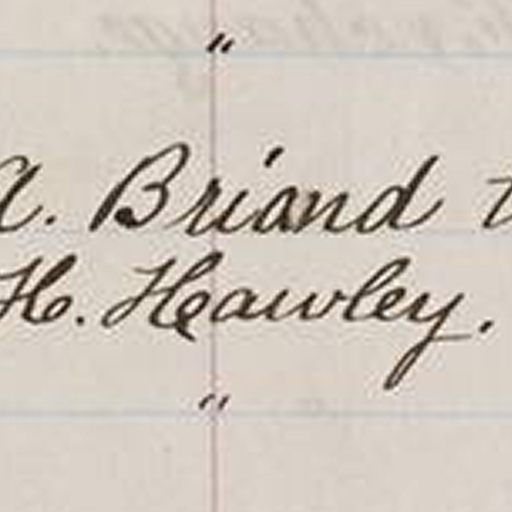 "
A. Briand
H. Hawley.
"